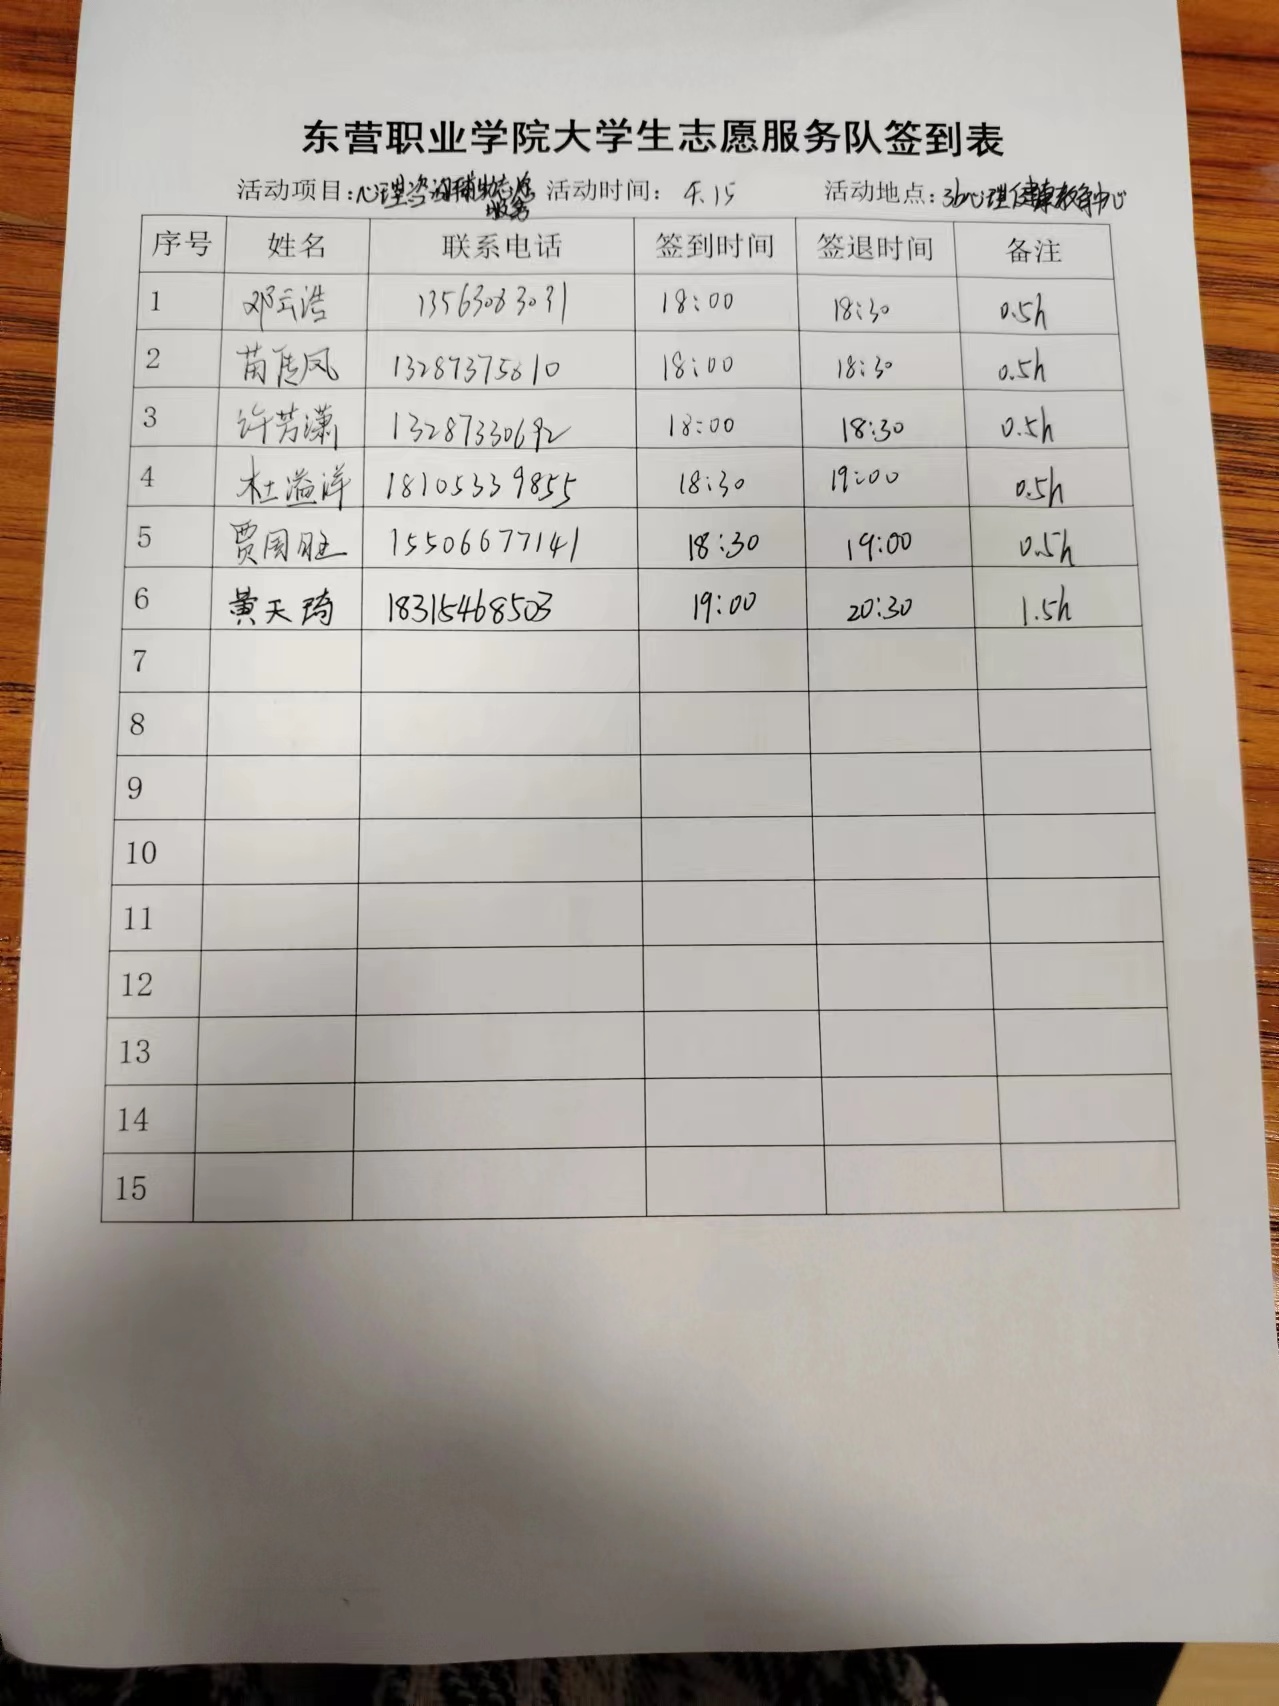 东营职业学院大学生志愿服务队签到表
活动项目:心理咨询辅助志愿服务 活动时间: 4.15 活动地点:3b心理健康教育中心
序号 姓名 联系电话 签到时间 签退时间 备注
1 邓云浩 18:00 18:30 0.5h
2 苗传凤 13287375610 18:00 18:30 0.5h
3 许芳潇 13287330692 18:00 18:30 0.5h
4 杜溢洋 18105339855 18:30 19:00 0.5h
5 贾国旺 15506677141 18:30 19:00 0.5h
6 黄天琦 18315468503 19:00 20:30 1.5h
7
8
9
10
11
12
13
14
15